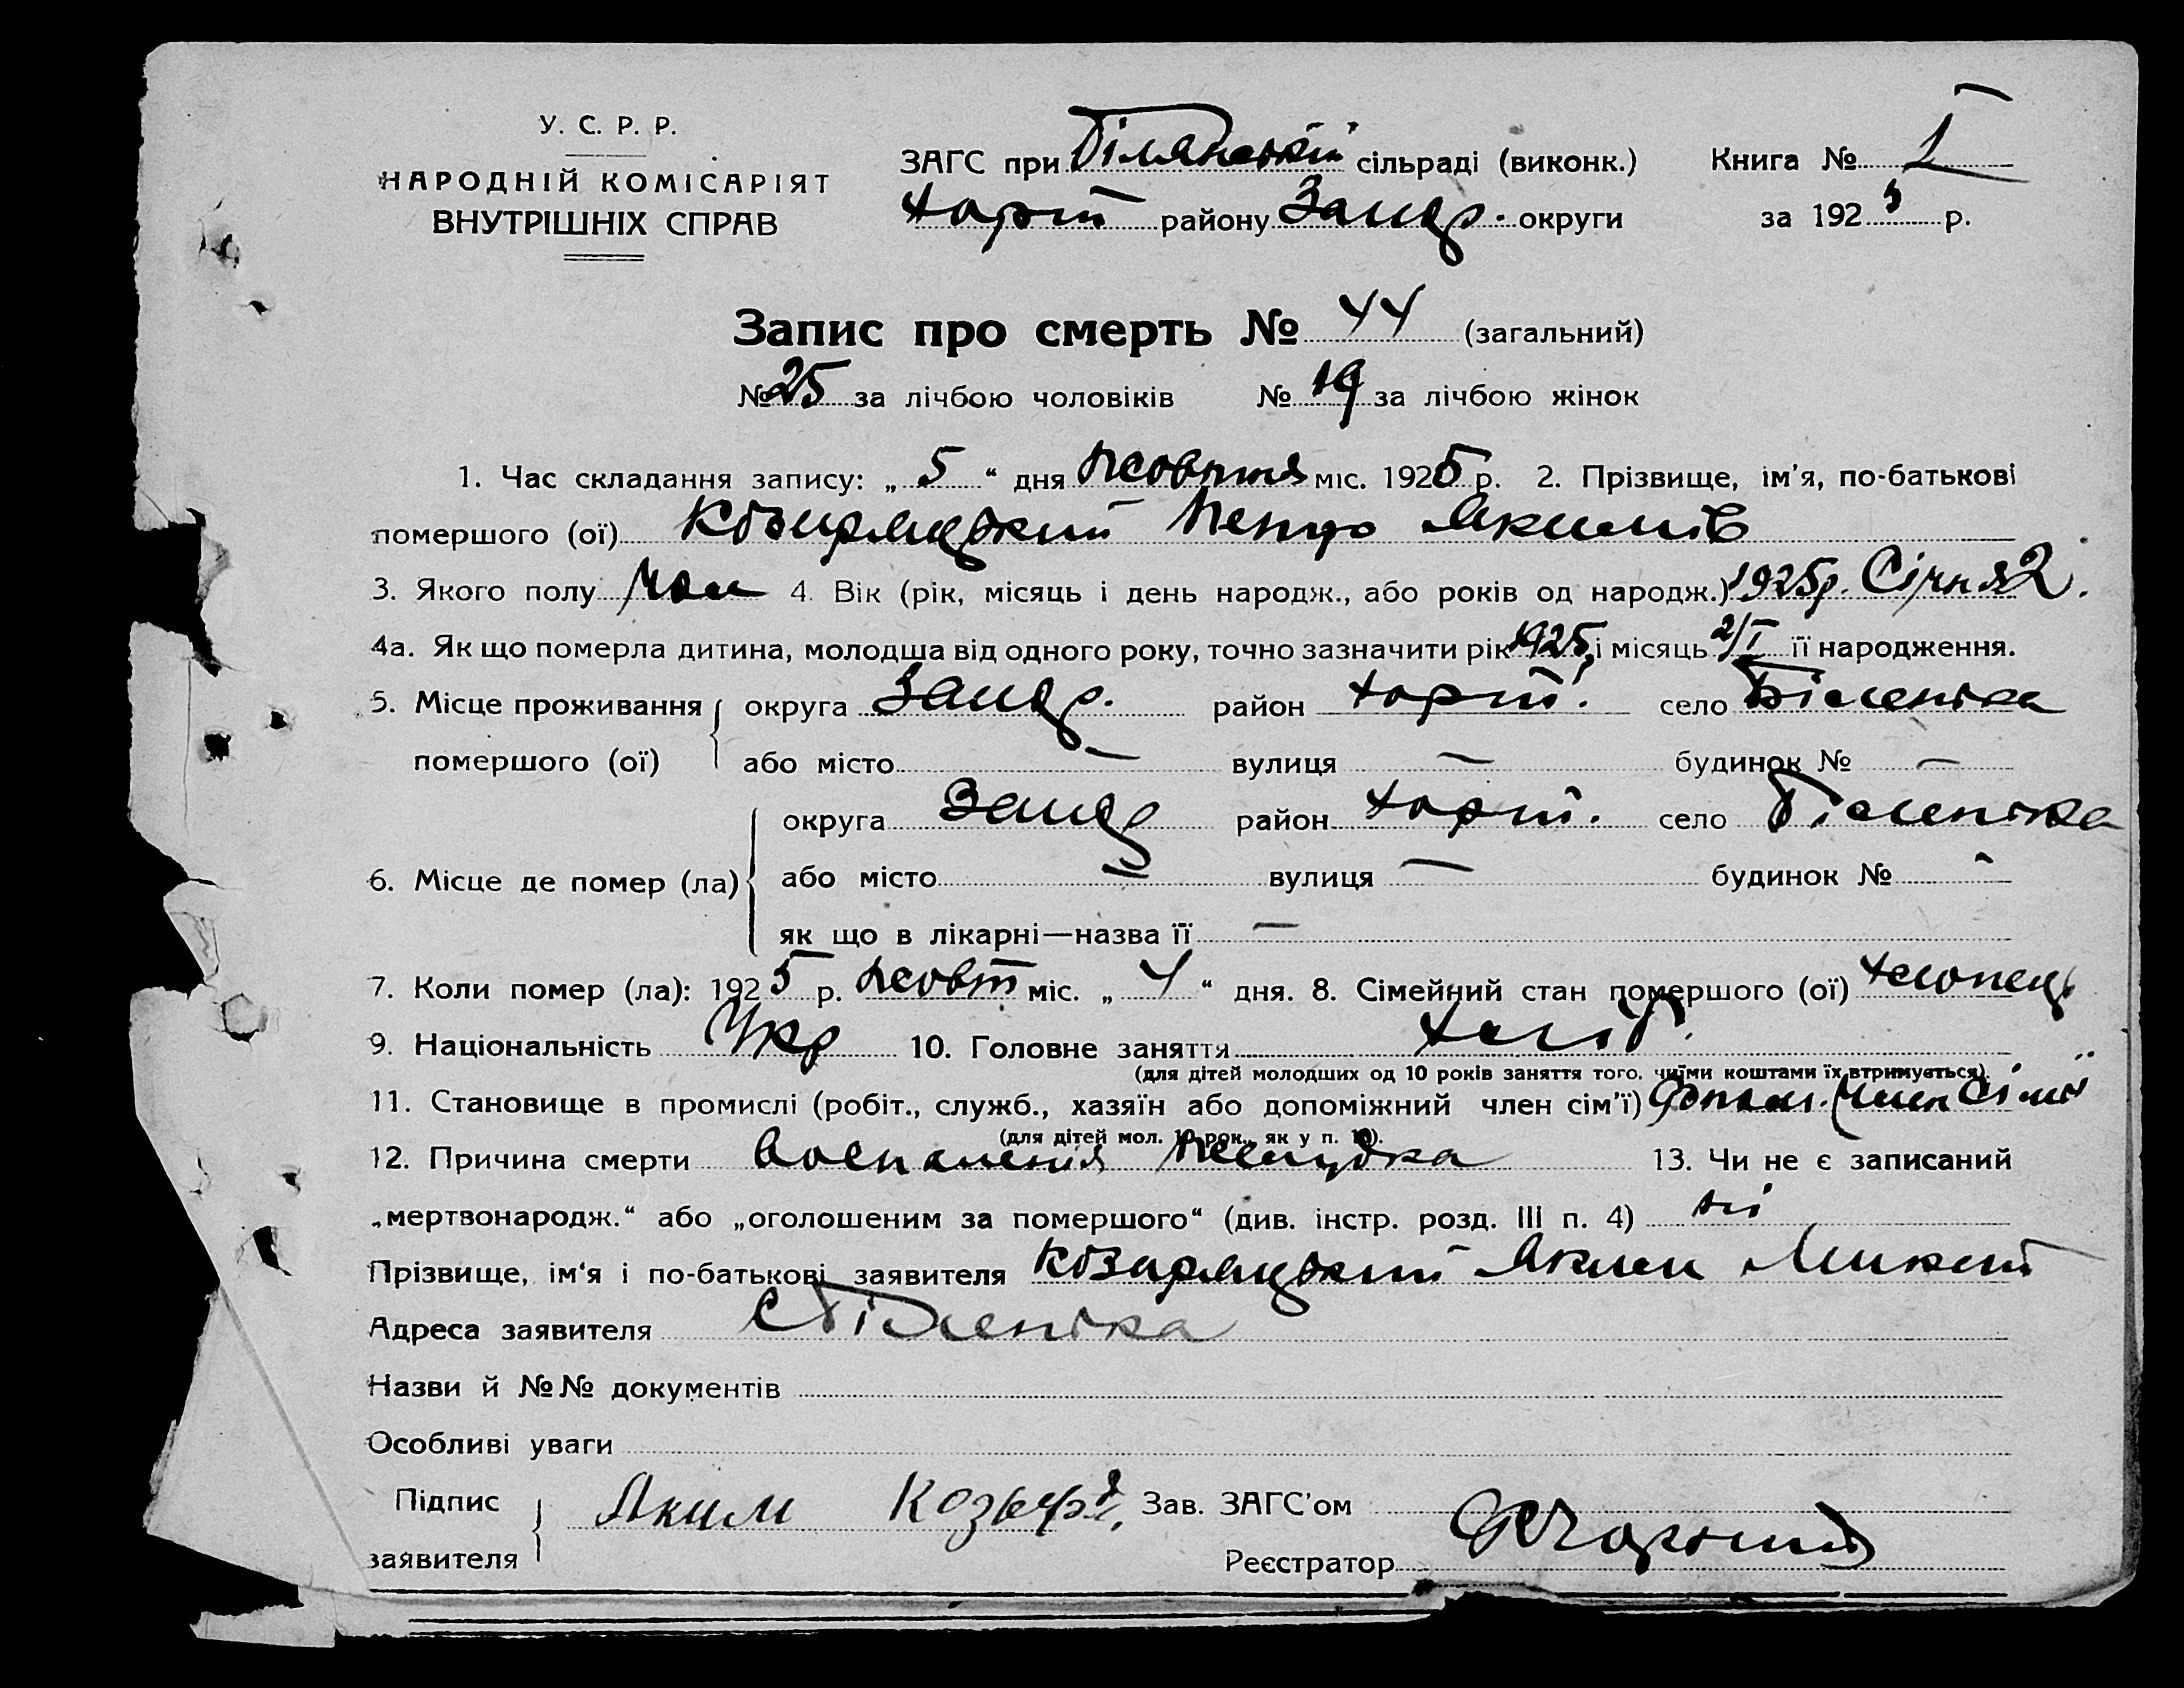 У. С. Р. Р.
НАРОДНІЙ КОМІСАРІЯТ
ВНУТРІШНІХ СПРАВ
ЗАГС при Біляньській сільраді (виконк.)
Хорт району Запор. округи
Книга № I
за 1925 р.
Запис про смерть № 44 (загальний)
№ 25 за лічбою чоловіків № 19 за лічбою жінок
1. Час складання запису: „ 5 “ дня жовтня міс. 1925 р. 2. Прізвище, ім'я, по-батькові
помершого (ої) Козиряцький Петро Якимів
3. Якого полу чол 4. Вік (рік, місяць і день народж., або років од народж.) 1925р. Січня 2.
4а. Як що померла дитина, молодша від одного року, точно зазначити рік 1925 і місяць 2/I її народження.
5. Місце проживання округа Запор. район Хорт. село Біленька
помершого (ої) або місто — вулиця — будинок № —
округа Запор район Хорт. село Біленька
6. Місце де помер (ла) або місто — вулиця — будинок № -
як що в лікарні—назва її —
7. Коли помер (ла): 1925 р. жовт міс. „ 4 “ дня. 8. Сімейний стан помершого (ої) хлопець
9. Національність Укр 10. Головне заняття хліб.
(для дітей молодших од 10 років заняття того, чиїми коштами їх втримується).
11. Становище в промислі (робіт., служб., хазяїн або допоміжний член сім'ї) допом. член сімї
(для дітей мол. 10 рок., як у п. 10).
12. Причина смерти воспаления желудка 13. Чи не є записаний
„мертвонародж.“ або „оголошеним за помершого“ (див. інстр. розд. III п. 4) ні
Прізвище, ім'я і по-батькові заявителя Козиряцький Яким Микит
Адреса заявителя с Біленька
Назви й №№ документів
Особливі уваги
Підпис
заявителя Яким Козыря, Зав. ЗАГС'ом
Реєстратор